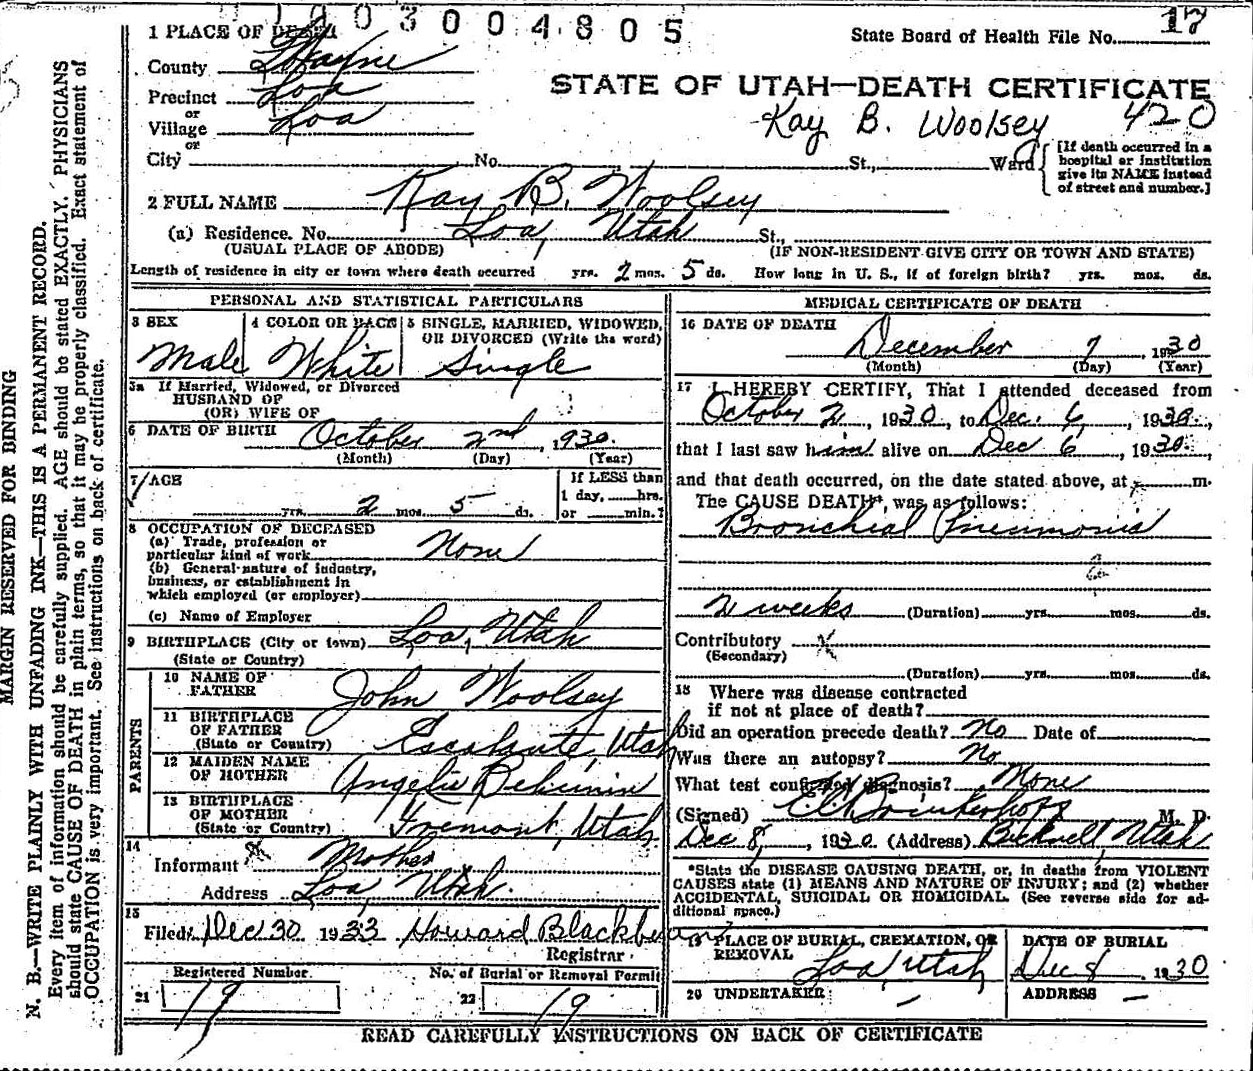 1003004805
1 PLACE OF DEATH
State Board of Health File No. 17
County Wayne
STATE OF UTAH—DEATH CERTIFICATE
Precinct Loa
or
Village Loa
Kay B. Woolsey 420
or
City No. St., Ward
[If death occurred in a
hospital or institution
give its NAME instead
of street and number.]
2 FULL NAME Kay B. Woolsey
(a) Residence. No. Loa, Utah St.,
(USUAL PLACE OF ABODE) (IF NON-RESIDENT GIVE CITY OR TOWN AND STATE)
Length of residence in city or town where death occurred yrs. 2 mos. 5 ds. How long in U. S., if of foreign birth? yrs. mos. ds.
PERSONAL AND STATISTICAL PARTICULARS
3 SEX
Male
4 COLOR OR RACE
White
5 SINGLE, MARRIED, WIDOWED,
OR DIVORCED (Write the word)
Single
5a If Married, Widowed, or Divorced
HUSBAND OF
(OR) WIFE OF
6 DATE OF BIRTH October 2nd, 1930.
(Month) (Day) (Year)
7 AGE
yrs. 2 mos. 5 ds.
If LESS than
1 day, hrs.
or min.?
8 OCCUPATION OF DECEASED
(a) Trade, profession or
particular kind of work None
(b) General nature of industry,
business, or establishment in
which employed (or employer)
(c) Name of Employer
9 BIRTHPLACE (City or town) Loa, Utah
(State or Country)
PARENTS
10 NAME OF
FATHER John Woolsey
11 BIRTHPLACE
OF FATHER
(State or Country) Escalante, Utah
12 MAIDEN NAME
OF MOTHER Angelie Behunin
13 BIRTHPLACE
OF MOTHER
(State or Country) Fremont, Utah
14
Informant Mother
Address Loa, Utah.
15
Filed Dec 30 1933 Howard Blackburn
Registrar
Registered Number
21 19
No. of Burial or Removal Permit
22 19
MEDICAL CERTIFICATE OF DEATH
16 DATE OF DEATH
December 7, 1930
(Month) (Day) (Year)
17 I HEREBY CERTIFY, That I attended deceased from
October 2, 1930, to Dec. 6, 1930,
that I last saw him alive on Dec 6, 1930,
and that death occurred, on the date stated above, at m.
The CAUSE DEATH*, was as follows:
Bronchial Pneumonia
2 weeks (Duration) yrs. mos. ds.
Contributory x
(Secondary)
(Duration) yrs. mos. ds.
18 Where was disease contracted
if not at place of death?
Did an operation precede death? No Date of
Was there an autopsy? No
What test confirmed diagnosis? None
(Signed) Brinkerhoff M. D.
Dec 8, 1930. (Address) Bicknell, Utah
*State the DISEASE CAUSING DEATH, or, in deaths from VIOLENT
CAUSES state (1) MEANS AND NATURE OF INJURY; and (2) whether
ACCIDENTAL, SUICIDAL OR HOMICIDAL. (See reverse side for ad-
ditional space.)
19 PLACE OF BURIAL, CREMATION, OR
REMOVAL Loa, Utah
DATE OF BURIAL
Dec 8 1930
20 UNDERTAKER —
ADDRESS —
READ CAREFULLY INSTRUCTIONS ON BACK OF CERTIFICATE
MARGIN RESERVED FOR BINDING
N. B.—WRITE PLAINLY WITH UNFADING INK—THIS IS A PERMANENT RECORD.
Every item of information should be carefully supplied. AGE should be stated EXACTLY. PHYSICIANS
should state CAUSE OF DEATH in plain terms, so that it may be properly classified. Exact statement of
OCCUPATION is very important. See instructions on back of certificate.